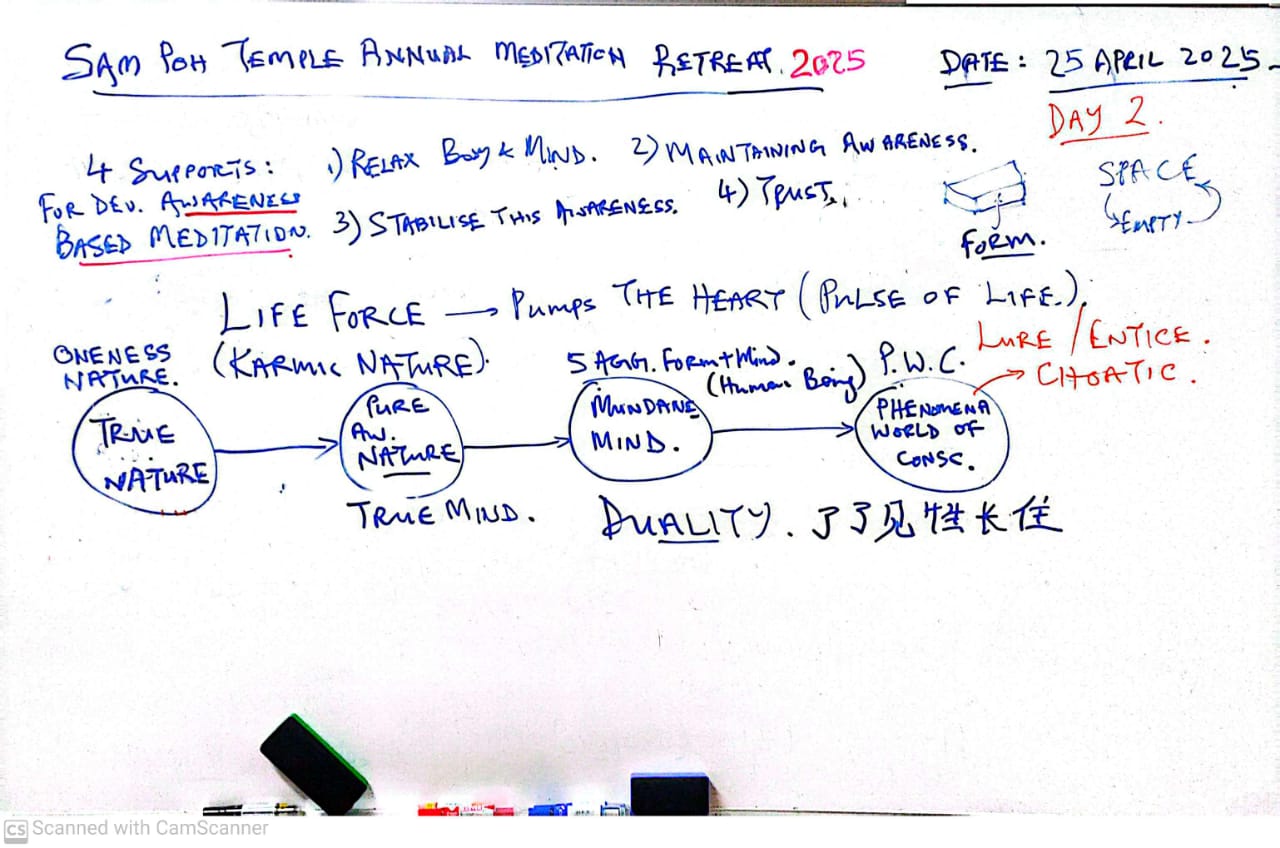 SAM POH TEMPLE ANNUAL MEDITATION RETREAT. 2025
DATE: 25 APRIL 2025
DAY 2.
4 SUPPORTS:
FOR DEV. AWARENESS
BASED MEDITATION.
1) RELAX BODY & MIND. 2) MAINTAINING AWARENESS.
3) STABILISE THIS AWARENESS. 4) TRUST
FORM.
SPACE
EMPTY
LIFE FORCE → PUMPS THE HEART (PULSE OF LIFE.).
(KARMIC NATURE).
ONENESS
NATURE.
TRUE
NATURE
PURE
AW.
NATURE
TRUE MIND.
5 AGG. FORM + MIND.
(HUMAN BEING)
MUNDANE
MIND.
P.W.C.
PHENOMENA
WORLD OF
CONSC.
LURE / ENTICE.
→ CHOATIC.
DUALITY. 了了见性长住
CS Scanned with CamScanner